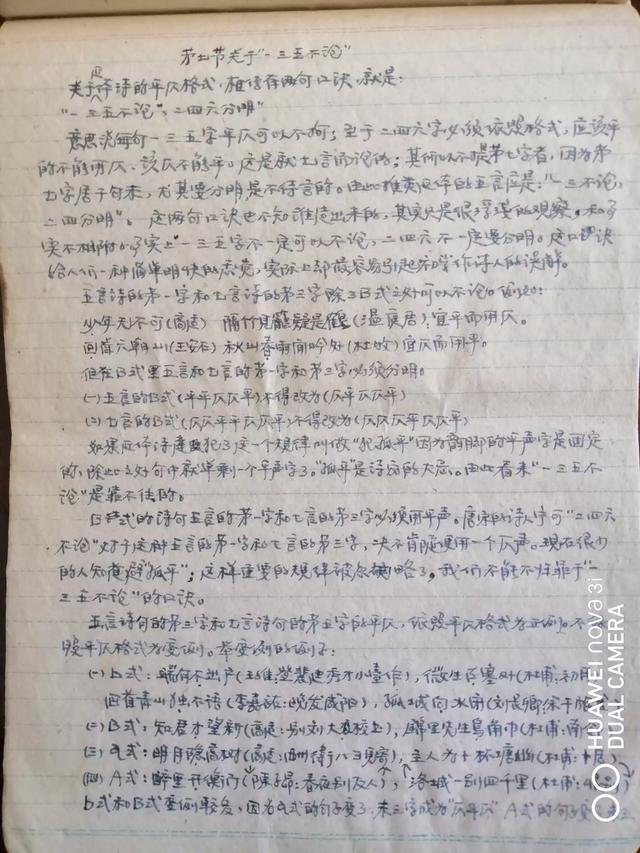 第七节关于"一三五不论"
关于律诗的平仄格式，相传有两句口诀，就是：
"一三五不论"，二四六分明"
意思说每句一三五字平仄可以不拘；至于二四六字必须依照格式，应该平
的不能用仄，该仄不能平。这是就七言而论的；其所以不提第七字者，因为第
七字居于句末，尤其要分明是不待言的。由此推类仄律的五言应是："一三不论，
二四分明"。这两句口诀也不知谁造出来的，其实只是很浮浅的观察，和事
实不相附。事实上一三五字不一定可以不论，二四六不一定要分明。这口诀
给人们一种简单明快的感觉，实际上却最容易引起初学作诗人的误解。
五言诗的第一字和七言诗的第三字除了B式之外可以不论。例如：
少年天不可(高适) 隔竹见笼疑是鹤(温庭筠)宜平而用仄。
回首六朝山(王安石) 秋山春雨闲吟处(杜牧)宜仄而用平。
但在B式里五言和七言的第一字和第三字必须分明。
(一)五言的B式(平平仄仄平)不得改为(仄平仄仄平)
(二)七言的B式(仄仄平平仄仄平)不得改为(仄仄仄平仄仄平)
如果在律诗里犯了这一个规律叫做"犯孤平"因为韵脚的平声字是固定
的，除此之外句中就单剩一个平声字了。"孤平是诗家的大忌。由此看来"一三五不
论"是靠不住的。
B式的诗句五言的第一字和七言的第三字必须用平声。唐宋的诗人宁可"二四六
不论"对于这种五言的第一字和七言的第三字，决不肯随便用一个仄声。现在很少
的人知道避"孤平"；这样重要的规律被忽略了，我们不能不归罪于"一
三五不论"的口诀。
五言诗句的第三字和七言诗句的第五字的平仄，依照平仄格式为正例。不
照平仄格式为变例。举变例的例子：
(一)b式：端居不出户(王维：登裴迪秀才小台作)，微生 (杜甫：初月
回首青山独不语(李嘉祐：晚发咸阳)，孤城向水闭(刘长卿：余干旅舍
(二)B式：知君才望新(高适：别刘大校书)，锦里先生乌角巾(杜甫：南邻
(三)a式：明月隐高树(高适： )，主人为 (杜甫：
(四)A式：醉里开衡门(陈子昂：春夜别友人)，洛城一别四千里(杜甫：
b式和B式变例较多，因为a式的句子变了，末三字成为"仄平仄"A式的句子变
HUAWEI nova 3i
DUAL CAMERA